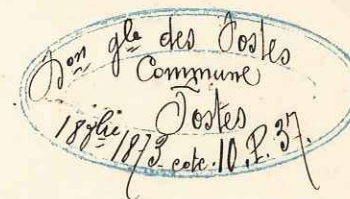 Don gle des Postes
Commune
Postes
18 1873 cote. 10. P. 37.